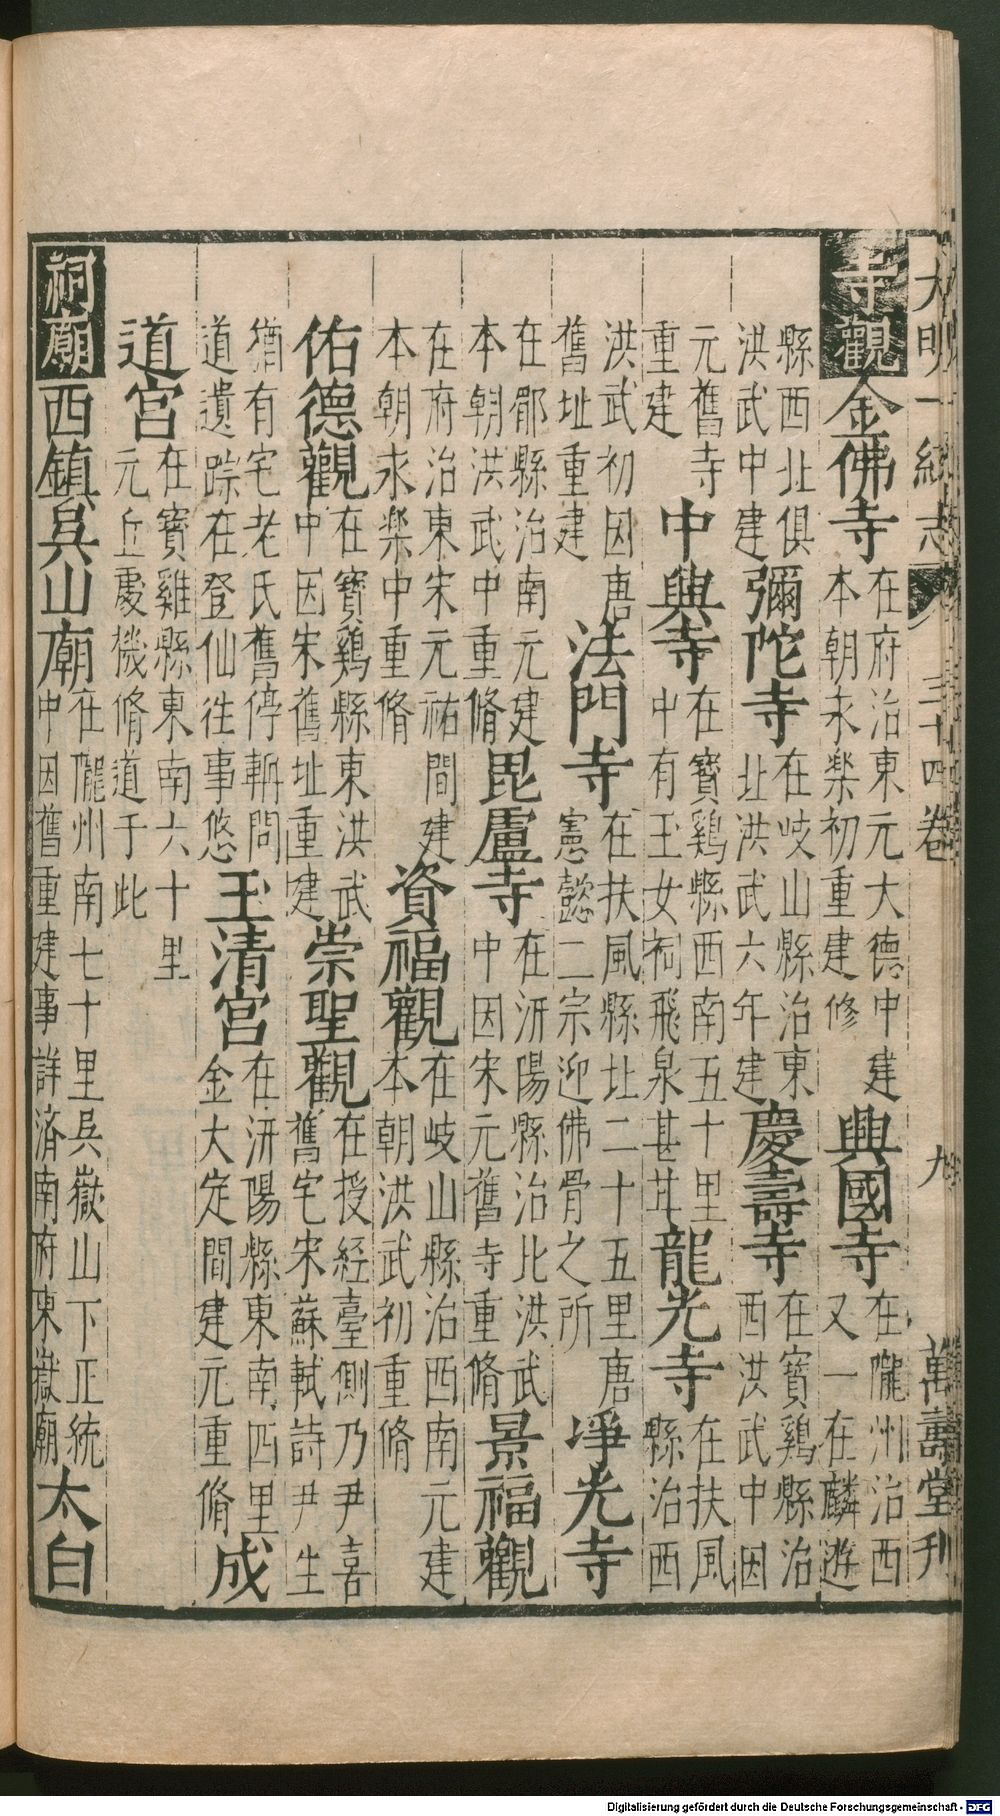 大明一統志 三十四卷 九 萬壽堂刋
寺觀 金佛寺 在府治東元大德中建本朝永樂初重建修 興國寺 在隴州治西又一在麟遊
縣西北俱洪武中建 彌陀寺 在岐山縣治東北洪武六年建 慶壽寺 在寶鷄縣治西洪武中因
元舊寺重建 中興寺 在寶鷄縣西南五十里中有玉女祠飛泉甚甘 龍光寺 在扶風縣治西
洪武初因唐舊址重建 法門寺 在扶風縣北二十五里唐憲懿二宗迎佛骨之所 淨光寺
在郿縣治南元建本朝洪武中重脩 毘盧寺 在汧陽縣治北洪武中因宋元舊寺重脩 景福觀
在府治東宋元祐間建本朝永樂中重脩 資福觀 在岐山縣治西南元建本朝洪武初重脩
佑德觀 在寶鷄縣東洪武中因宋舊址重建 崇聖觀 在授經臺側乃尹喜舊宅宋蘇軾詩尹生
猶有宅老氏舊停斬問道遺踪在登仙徃事悠 玉清宮 在汧陽縣東南四里金大定間建元重脩 成
道宮 在寶雞縣東南六十里元丘處機脩道于此
祠廟 西鎮吳山廟 在隴州南七十里吳嶽山下正統中因舊重建事詳済南府東嶽廟 太白
Digitalisierung gefördert durch die Deutsche Forschungsgemeinschaft - DFG